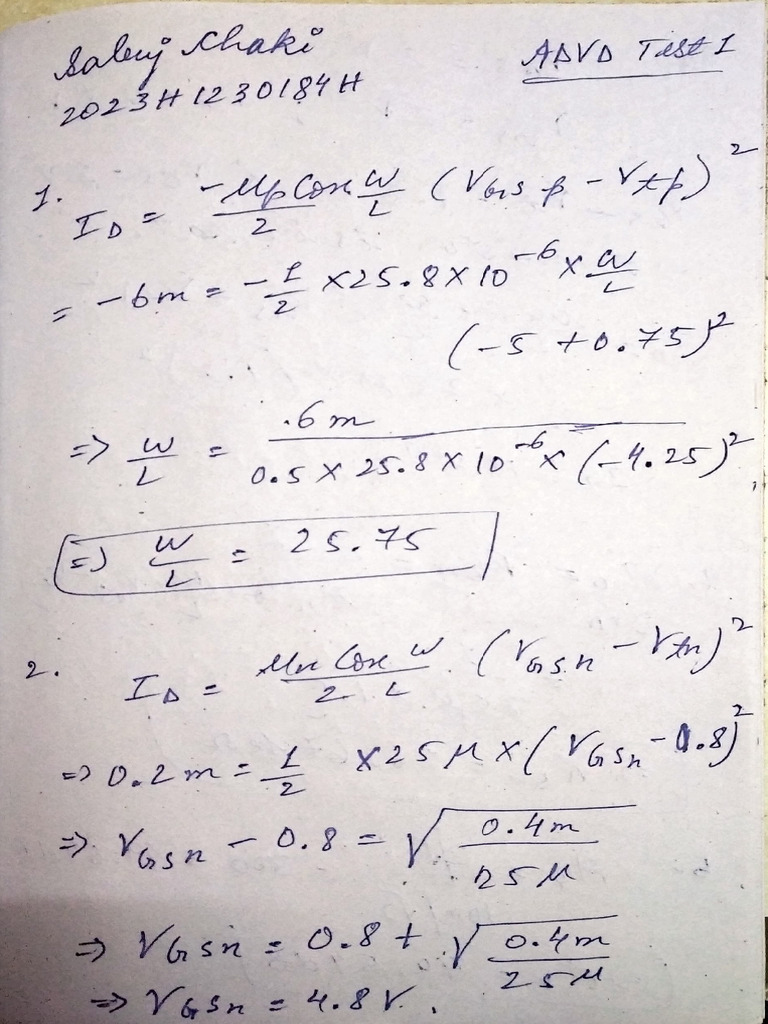 ADVD Test 1
2023H1230184H
1. I_D = -μp Cox/2 W/L (VGSp - Vtp)^2
= -6m = -1/2 × 25.8 × 10^-6 × W/L
(-5 + 0.75)^2
=> W/L = .6m / 0.5 × 25.8 × 10^-6 × (-4.25)^2
=> W/L = 25.75
2. I_D = μn Cox/2 W/L (VGSn - Vtn)^2
=> 0.2m = 1/2 × 25μ × (VGSn - 0.8)^2
=> VGSn - 0.8 = √(0.4m / 25μ)
=> VGSn = 0.8 + √(0.4m / 25μ)
=> VGSn = 4.8V.